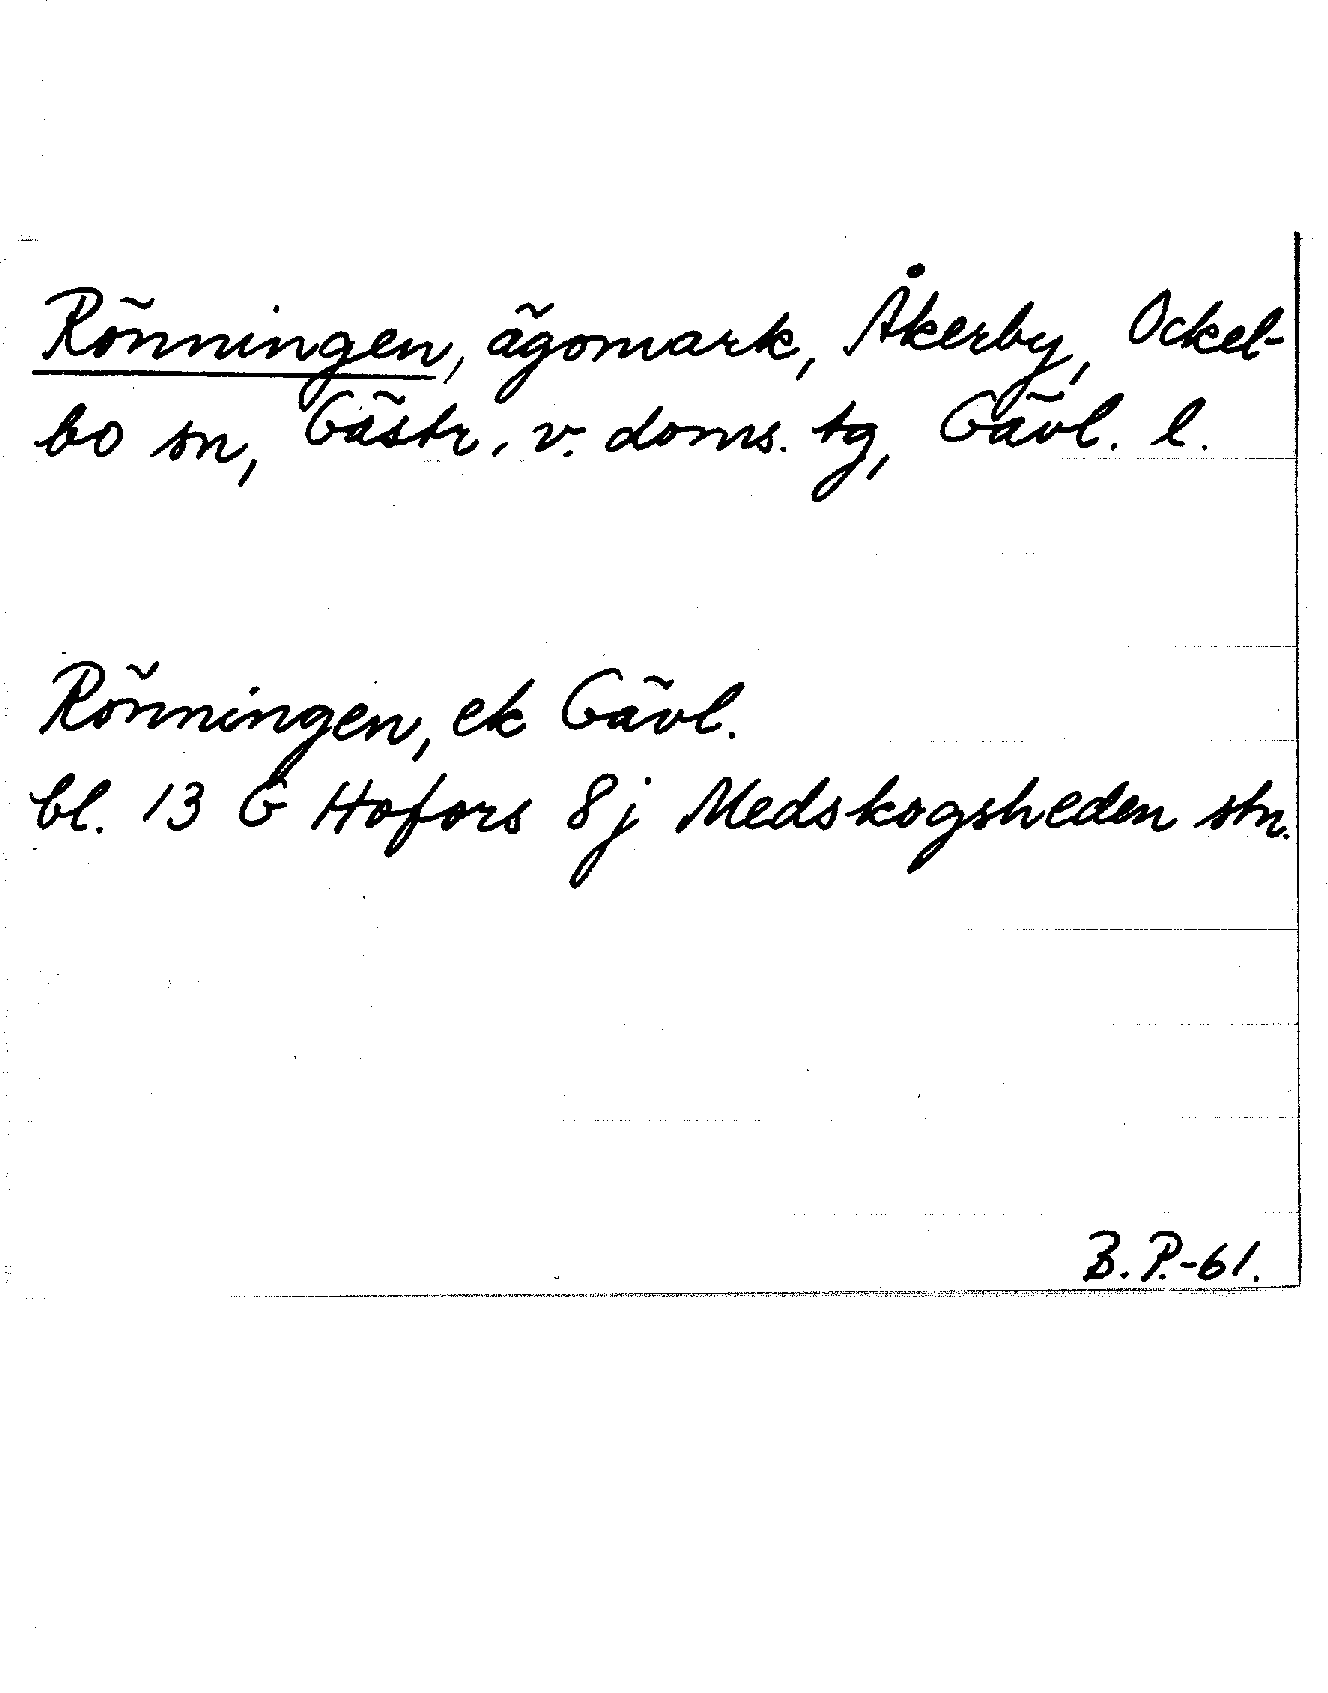 Rönningen, ägomark, Åkerby, Ockel-
bo sn, Gästr. v. doms. tg, Gävl. l.
Rönningen, ek Gävl.
bl. 13 G Hofors 8j Medskogsheden stn.
B.P.-61.